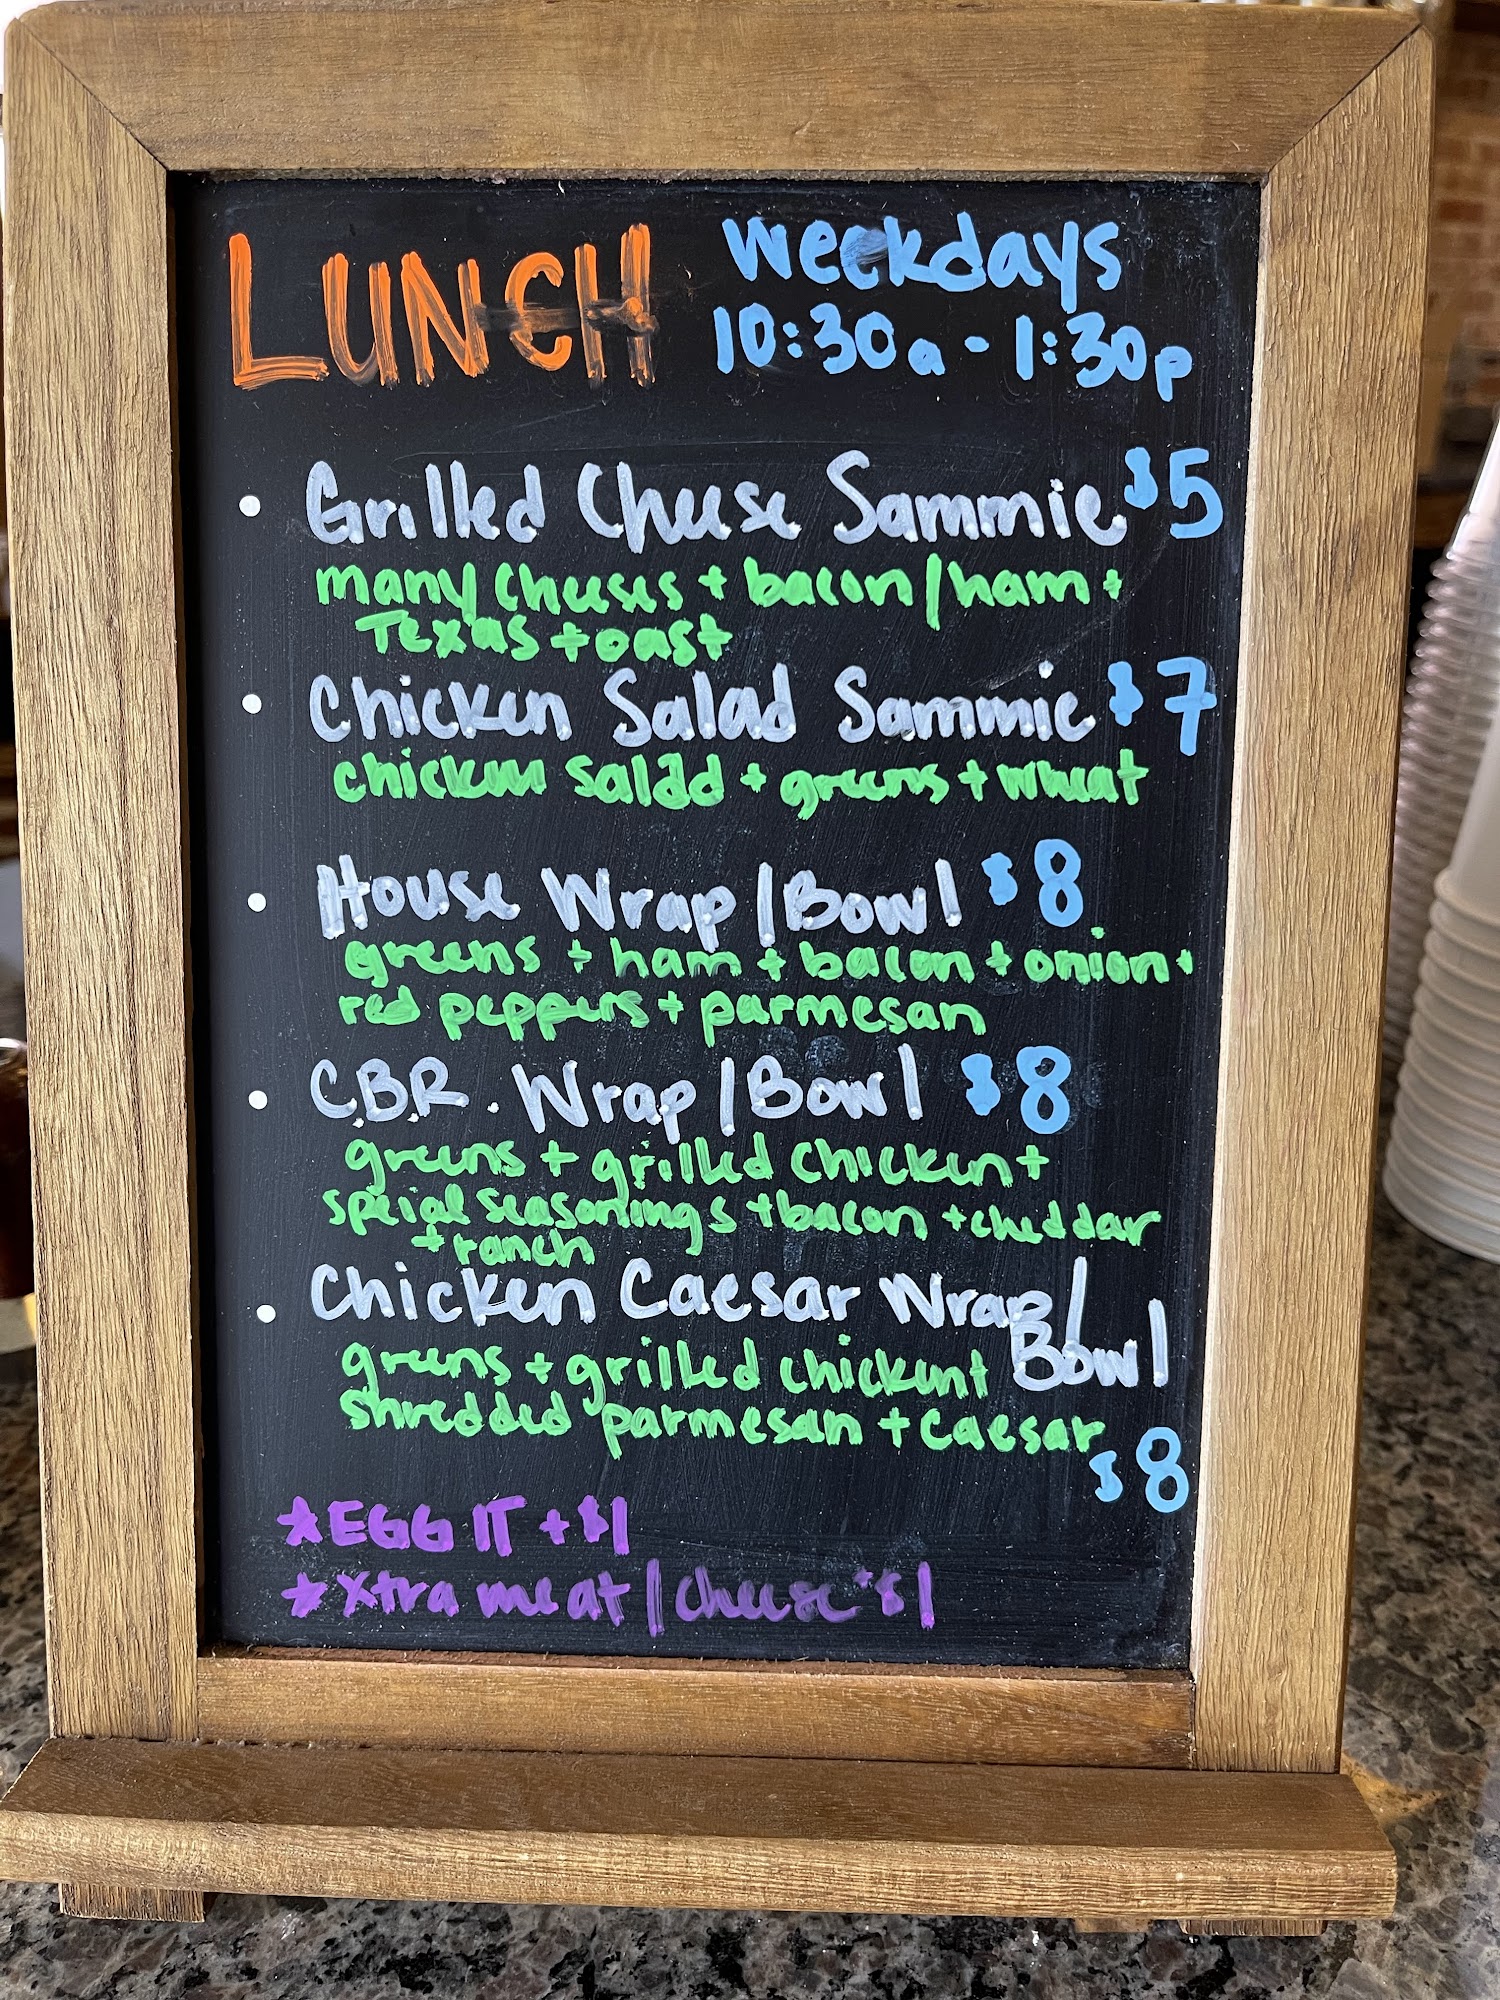 LUNCH weekdays
10:30a - 1:30p
• Grilled Cheese Sammie $5
many cheeses + bacon/ham +
Texas toast
• Chicken Salad Sammie $7
chicken salad + greens + wheat
• House Wrap/Bowl $8
greens + ham + bacon + onion +
red peppers + parmesan
• C.B.R. Wrap/Bowl $8
greens + grilled chicken +
speical seasonings + bacon + cheddar
+ ranch
• Chicken Caesar Wrap/
Bowl
greens + grilled chicken +
shredded parmesan + caesar
$8
★ EGG IT + $1
★ Xtra meat/cheese + $1